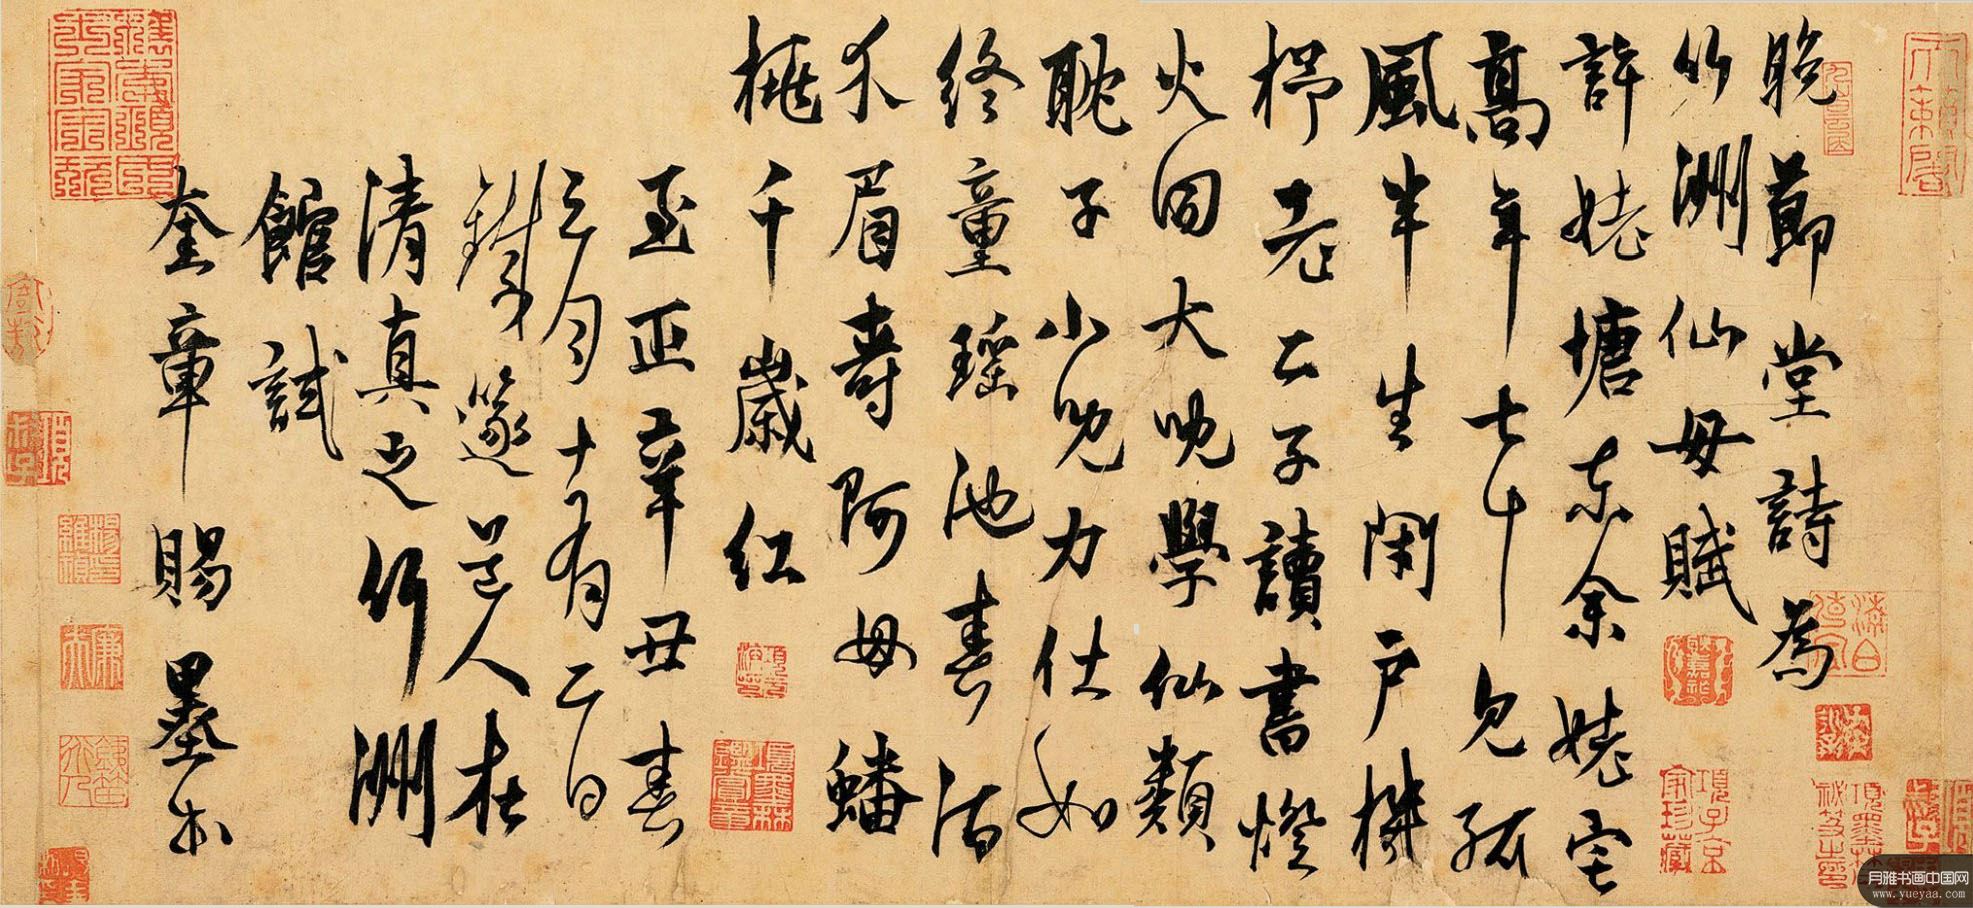 晚節堂詩為
竹洲仙母賦
許姥塘東余姥宅
高年七十見孤
風半生閑戶機
杼老二子讀書燈
火同大兒學仙類
耽子小兒力仕如
終童瑤池春酒
介眉壽阿母蟠
桃千歲紅
至正辛丑春
三月十有二日
鐵篴道人在
清真之竹洲
館試
奎章賜墨書
月雅书画中国网
www.yueyaa.com